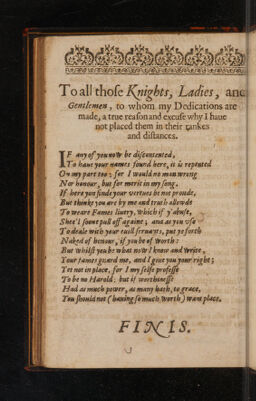 To all those Knights, Ladies, and
Gentlemen, to whom my Dedications are
made, a true reason and excuse why I haue
not placed them in their rankes
and distances.
IF any of you now be discontented,
To haue your names found here, it is repented
On my part too; for I would no man wrong
Nor honour, but for merit in my song.
If here you finde your vertues be not proude,
But thinke you are by me and truth allowde
To weare Fames liuery, which if y'abuse,
Shee'l soone pull off againe; and as you vse
To deale with your euill seruants, put ye forth
Naked of honour, if you be of worth:
But whilst you be what now I know and write,
Your fames guard me, and I giue you your right;
Yet not in place, for I my selfe professe
To be no Harald; but if worthinesse
Had as much power, as many hath, to grace,
You should not (hauing so much worth) want place.
FINIS.